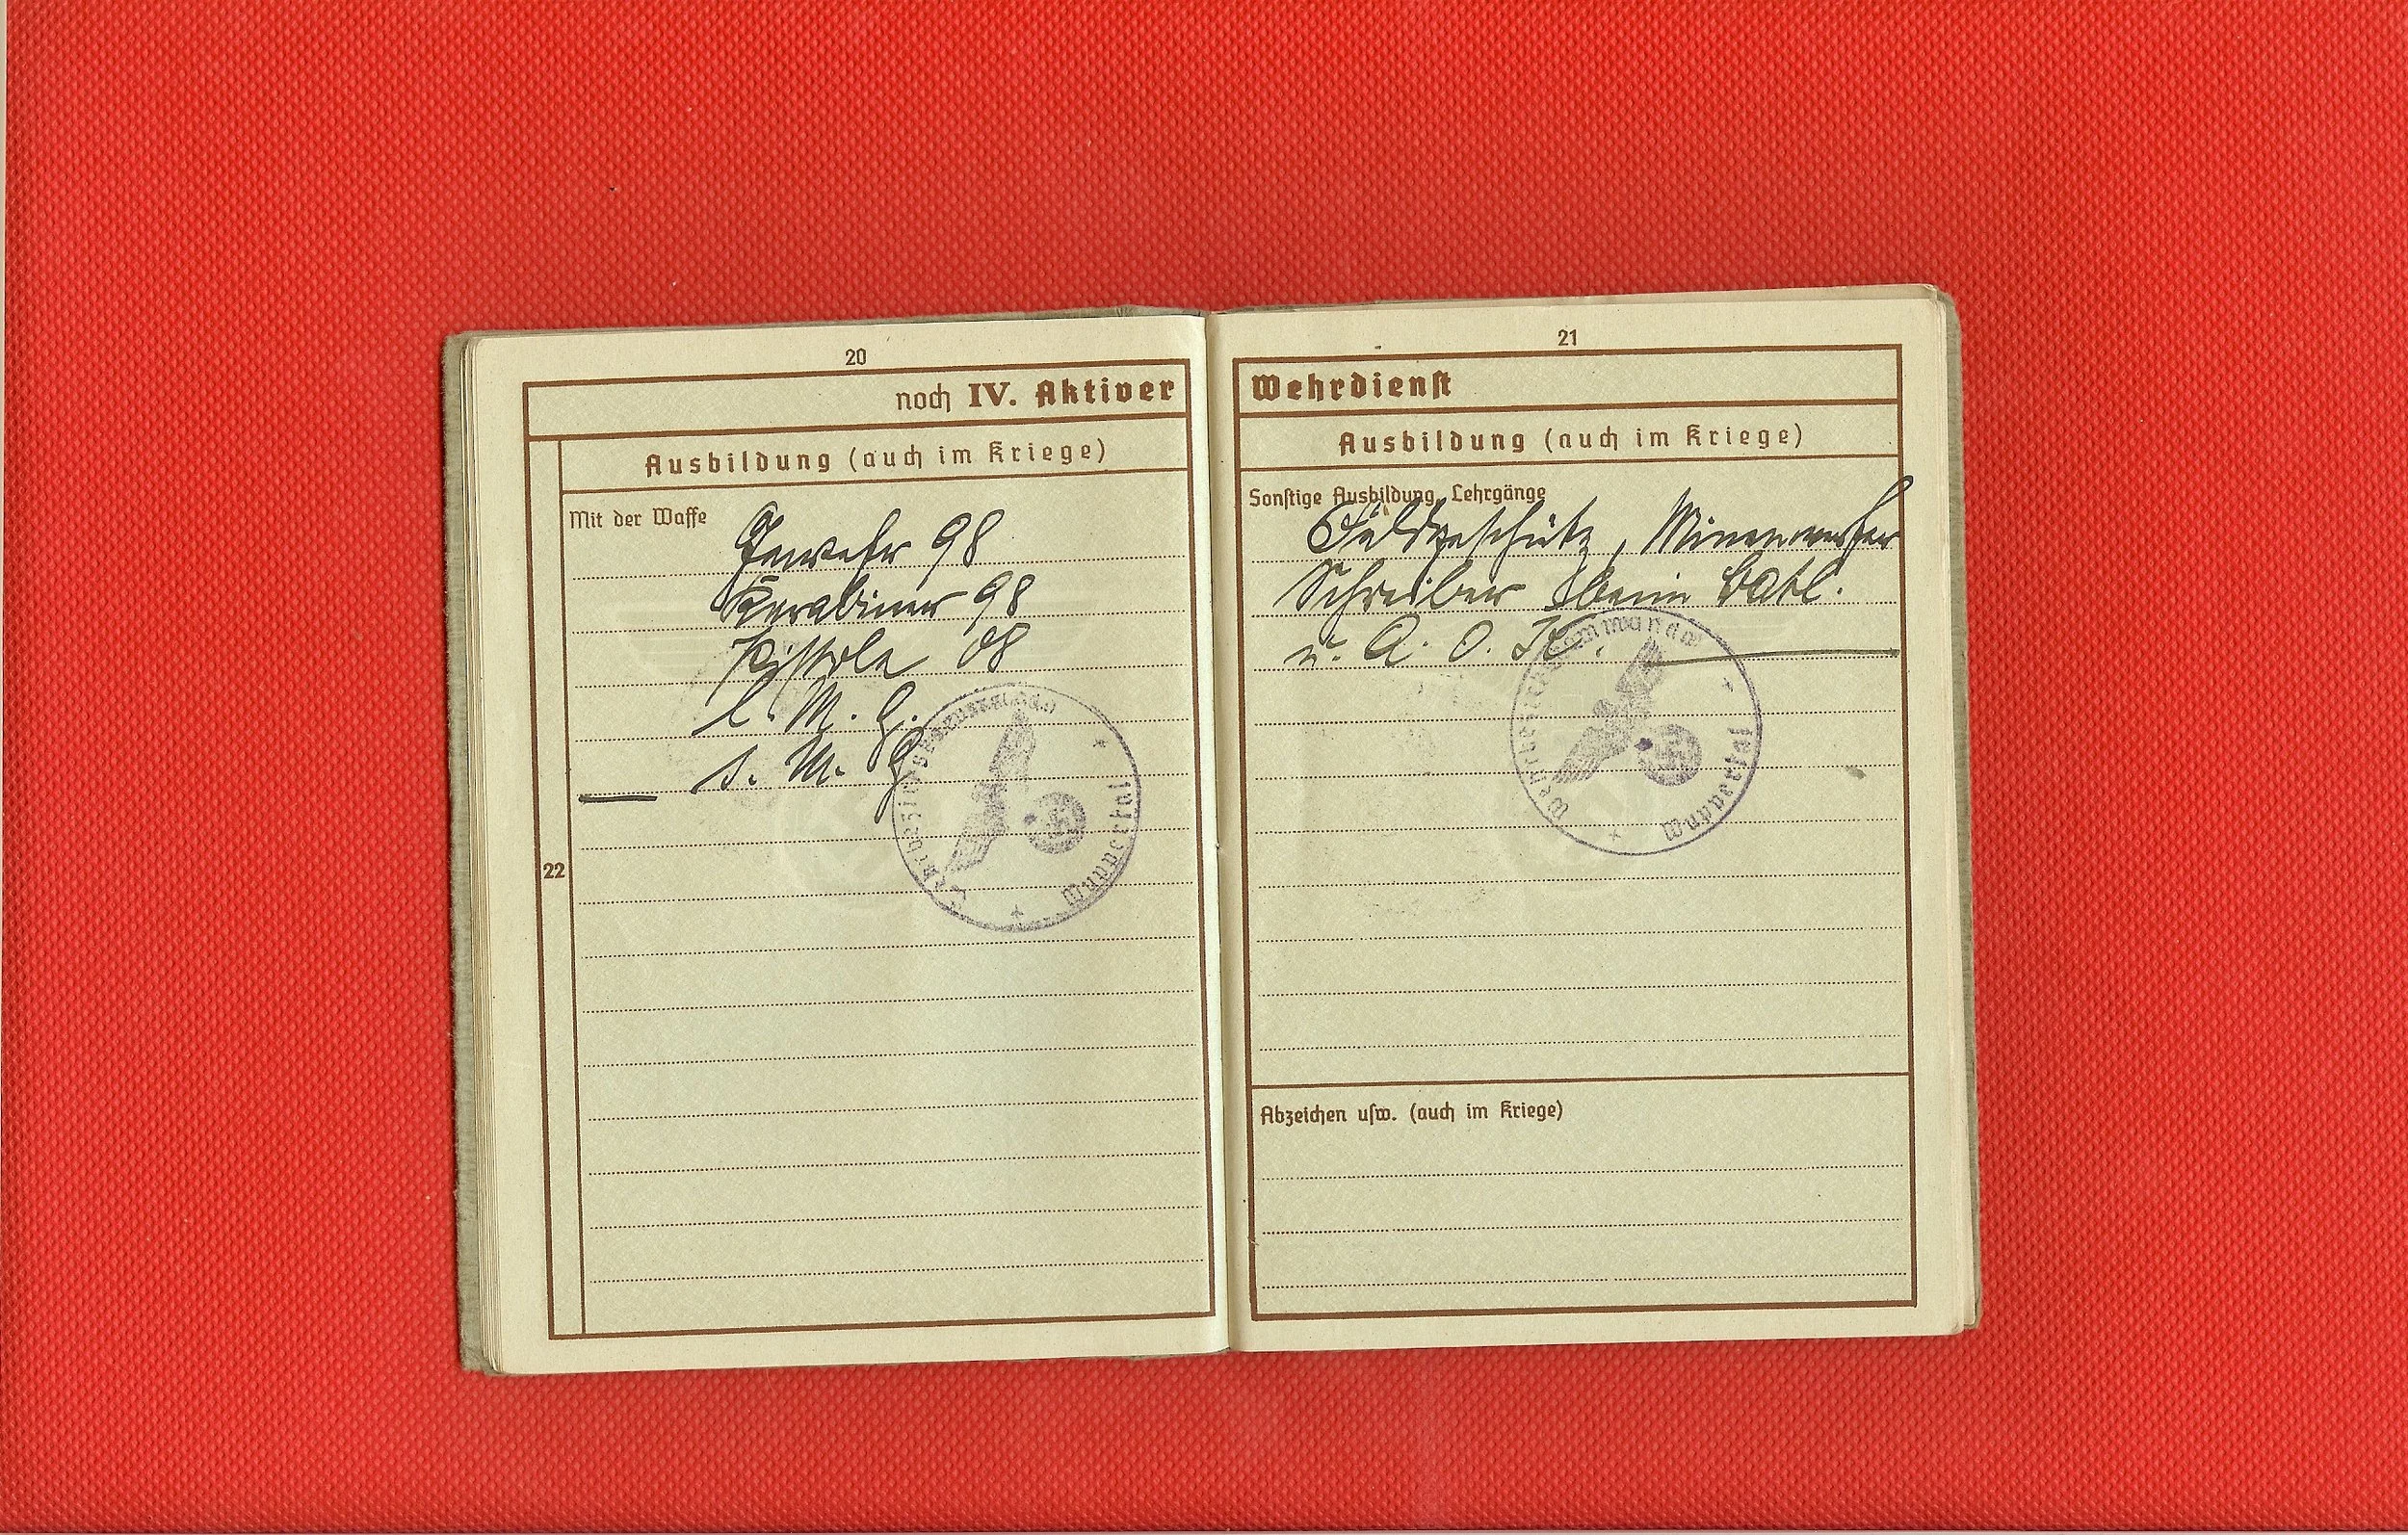 20
noch IV. Aktiver
Ausbildung (auch im Kriege)
Mit der Waffe
Gewehr 98
Karabiner 98
Pistole 08
l. M. G.
s. M. G.
22
Wuppertal
21
Wehrdienst
Ausbildung (auch im Kriege)
Sonstige Ausbildung, Lehrgänge
Feldgeschütz, Minenwerfer
Schreiber beim Batl.
u. A. O. K.
Wehrbezirkskommando Wuppertal
Abzeichen usw. (auch im Kriege)